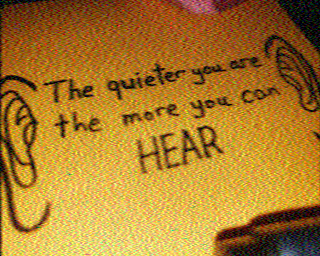 The quieter you are
the more you can
HEAR